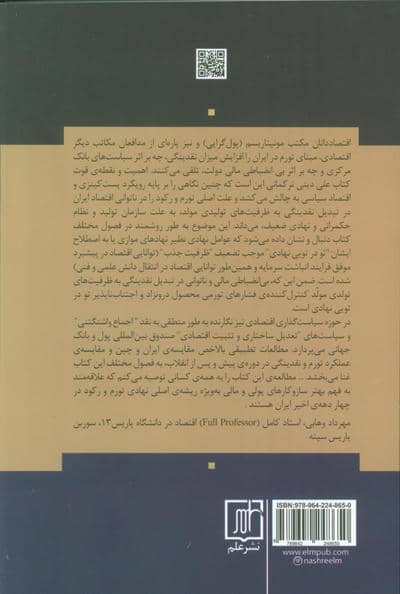 اقتصاددانان مکتب مونیتاریسم (پول‌گرایی) و نیز پاره‌ای از مدافعان مکاتب دیگر
اقتصادی، مبنای تورم در ایران را افزایش میزان نقدینگی، چه بر اثر سیاست‌های بانک
مرکزی و چه بر اثر بی انضباطی مالی دولت، تلقی می‌کنند. اهمیت و نقطه‌ی قوت
کتاب علی دینی ترکمانی این است که چنین نگاهی را بر پایه رویکرد پست‌کینزی و
اقتصاد سیاسی به چالش می‌کشد و علت اصلی تورم و رکود را در ناتوانی اقتصاد ایران
در تبدیل نقدینگی به ظرفیت‌های تولیدی مولد، به علت سازمان تولید و نظام
حکمرانی و نهادی ضعیف، می‌داند. این موضوع به طور روشمند در فصول مختلف
کتاب دنبال و نشان داده می‌شود که عوامل نهادی نظیر نهادهای موازی یا به اصطلاح
ایشان "تو در تویی نهادی" موجب تضعیف "ظرفیت جذب" (توانایی اقتصاد در پیشبرد
موفق فرایند انباشت سرمایه و همین‌طور توانایی اقتصاد در انتقال دانش علمی و فنی)
شده است. ضمن این که، بی‌انضباطی مالی و ناتوانی در تبدیل نقدینگی به ظرفیت‌های
تولدی مولد کنترل‌کننده‌ی فشارهای تورمی محصول درونزاد و اجتناب‌ناپذیر تو در
تویی نهادی است.
در حوزه سیاست‌گذاری اقتصادی نیز نگارنده به طور منطقی به نقد "اجماع واشنگتنی"
و سیاست‌های "تعدیل ساختاری و تثبیت اقتصادی" صندوق بین‌المللی پول و بانک
جهانی می‌پردازد. مطالعات تطبیقی بالاخص مقایسه‌ی ایران و چین و مقایسه‌ی
عملکرد تورم و نقدینگی در دوره‌ی پیش و پس از انقلاب، به فصول مختلف این کتاب
غنا می‌بخشد ... مطالعه‌ی این کتاب را به همه‌ی کسانی توصیه می‌کنم که علاقه‌مند
به فهم بهتر سازوکارهای پولی و مالی به‌ویژه ریشه‌ی اصلی نهادی تورم و رکود در
چهار دهه‌ی اخیر ایران هستند .
مهرداد وهابی، استاد کامل (Full Professor) اقتصاد در دانشگاه پاریس ۱۳، سوربن
پاریس سیته
ISBN: 978-964-224-865-0
نشر علم
www.elmpub.com
nashreelm